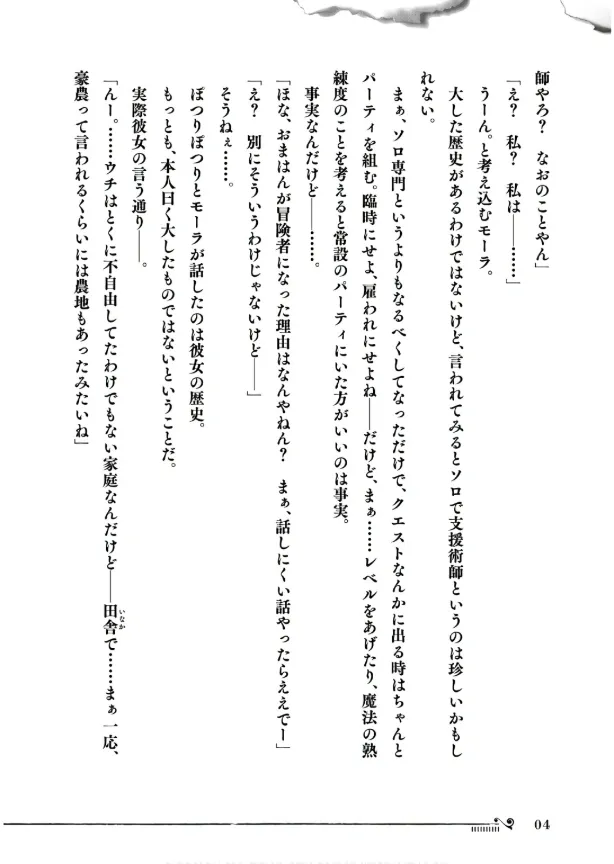 師やろ？　なおのことやん」
「え？　私？　私は――……」
うーん。と考え込むモーラ。
大した歴史があるわけではないけど、言われてみるとソロで支援術師というのは珍しいかもし
れない。
まぁ、ソロ専門というよりもなるべくしてなっただけで、クエストなんかに出る時はちゃんと
パーティを組む。臨時にせよ、雇われにせよね――だけど、まぁ……レベルをあげたり、魔法の熟
練度のことを考えると常設のパーティにいた方がいいのは事実。
事実なんだけど――……。
「ほな、おまはんが冒険者になった理由はなんやねん？　まぁ、話しにくい話やったらええでー」
「え？　別にそういうわけじゃないけど――」
そうねぇ……。
ぽつりぽつりとモーラが話したのは彼女の歴史。
もっとも、本人曰く大したものではないということだ。
実際彼女の言う通り――。
「んー。……ウチはとくに不自由してたわけでもない家庭なんだけど――田舎で……まぁ一応、
いなか
豪農って言われるくらいには農地もあったみたいね」
04